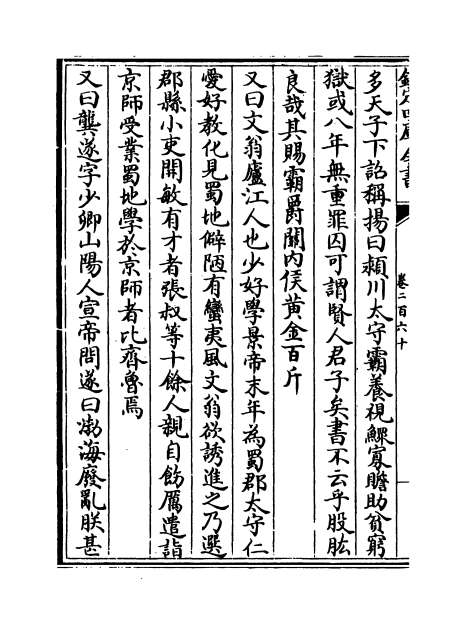 欽定四庫全書
卷二百六十
多天子下詔稱揚曰潁川太守霸養視鰥寡贍助貧窮
獄或八年無重罪囚可謂賢人君子矣書不云乎股肱
良哉其賜霸爵關內侯黃金百斤
又曰文翁廬江人也少好學景帝末年為蜀郡太守仁
愛好教化見蜀地僻陋有蠻夷風文翁欲誘進之乃選
郡縣小吏開敏有才者張叔等十餘人親自飭厲遣詣
京師受業蜀地學於京師者比齊魯焉
又曰龔遂字少卿山陽人宣帝問遂曰渤海廢亂朕甚